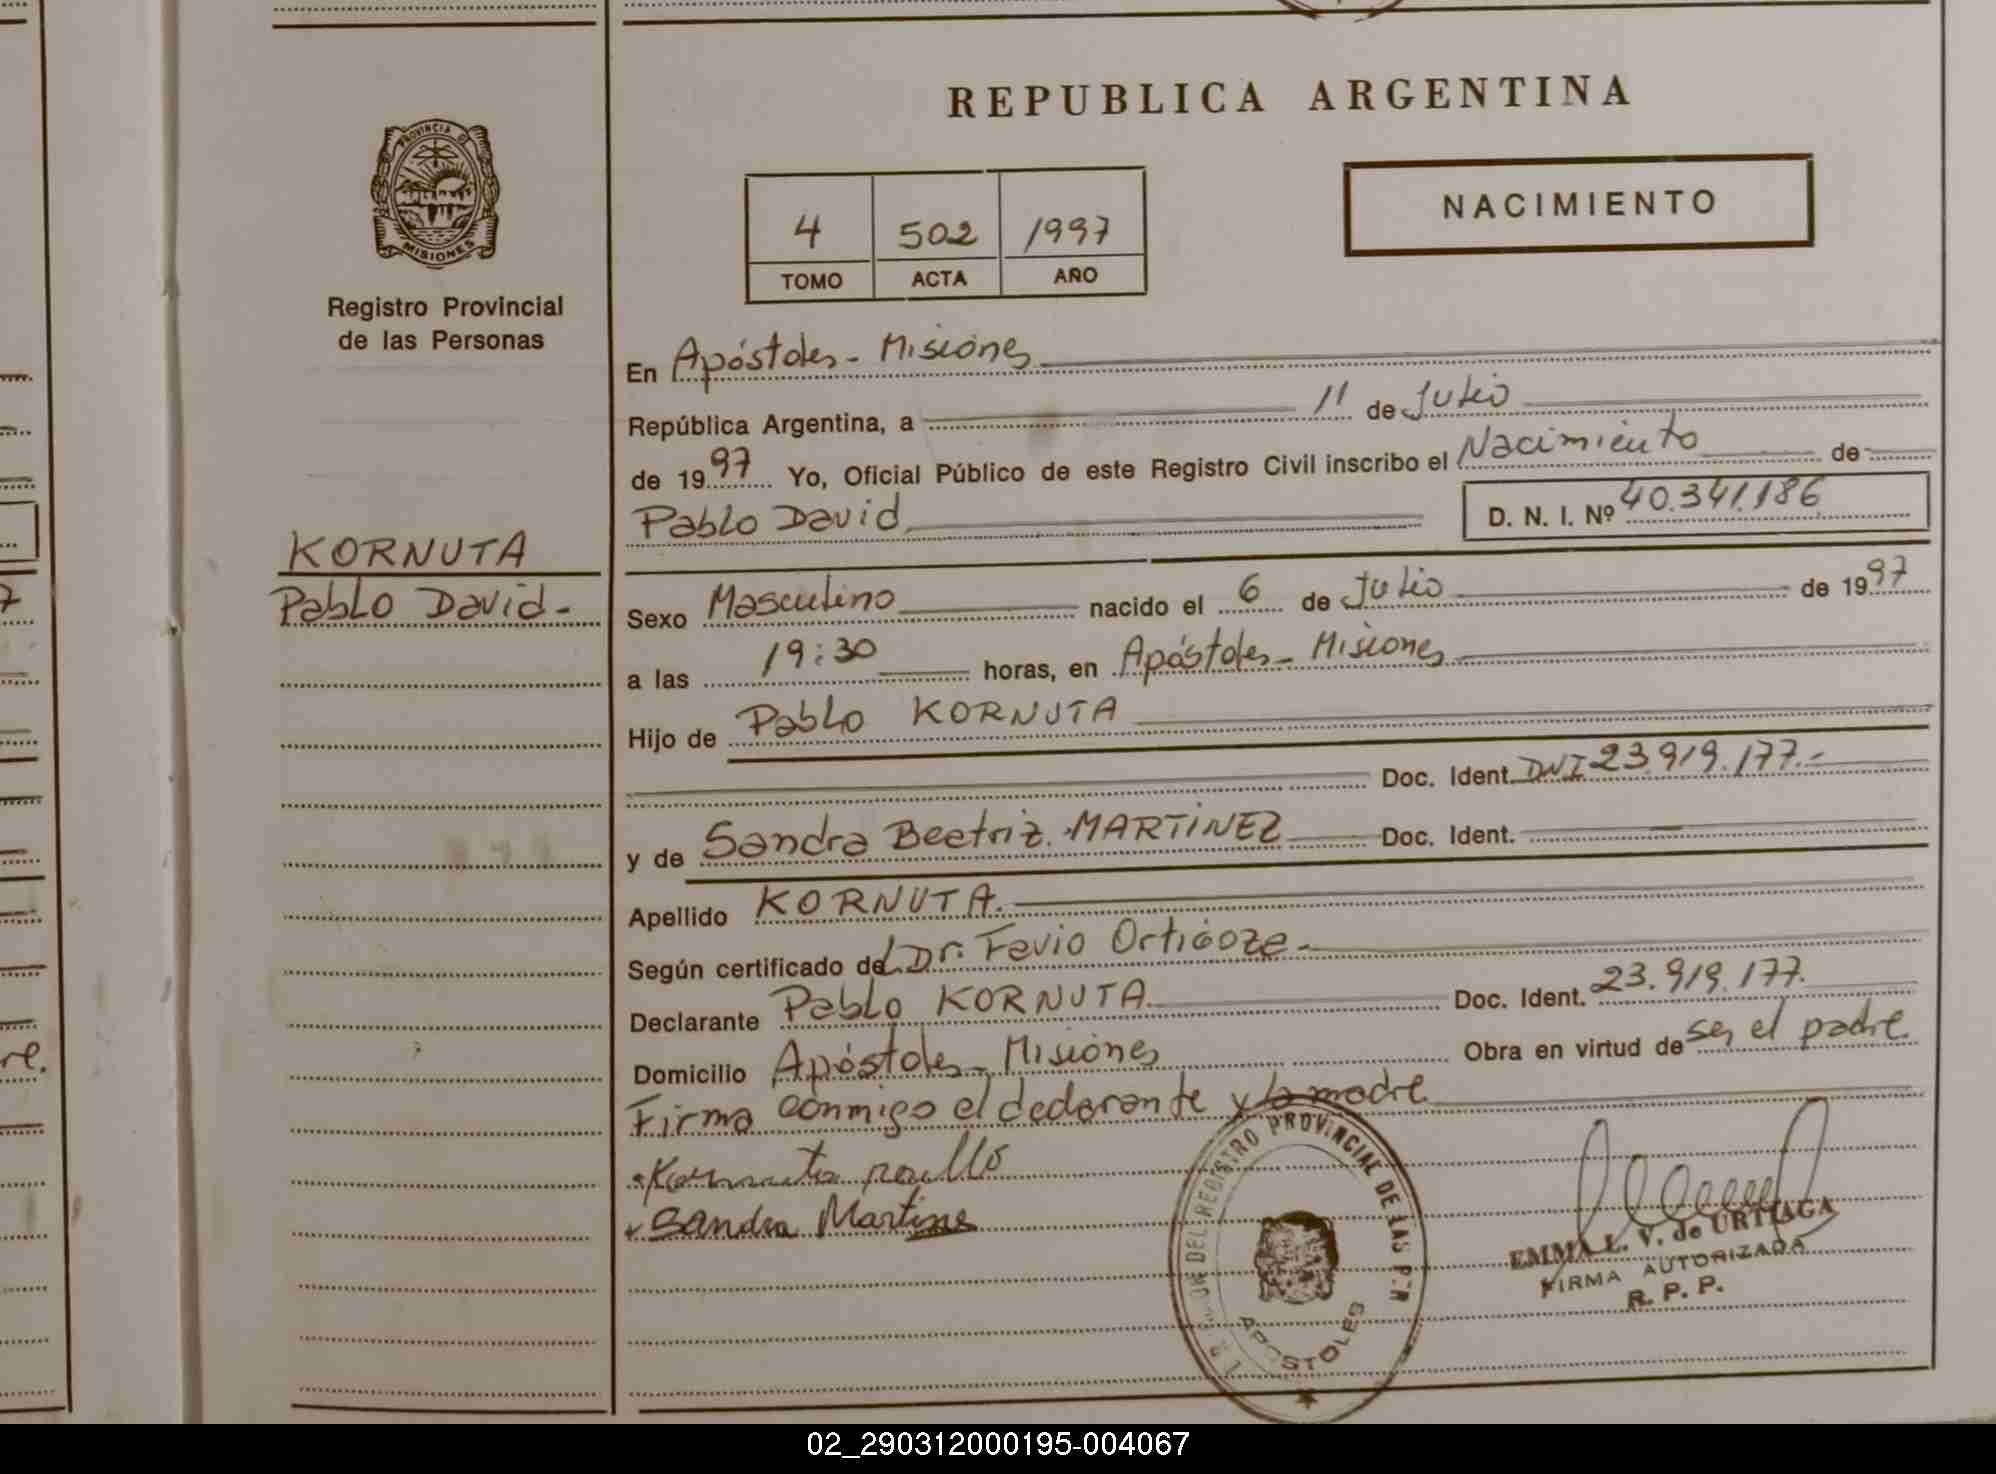 REPUBLICA ARGENTINA
PROVINCIA DE
MISIONES
Registro Provincial
de las Personas
4 502 1997
TOMO ACTA AÑO
NACIMIENTO
En Apóstoles - Misiones
República Argentina, a 11 de Julio
de 1997 Yo, Oficial Público de este Registro Civil inscribo el Nacimiento de
Pablo David D. N. I. Nº 40.341.186
KORNUTA
Pablo David -
Sexo Masculino nacido el 6 de Julio de 1997
a las 19:30 horas, en Apóstoles - Misiones
Hijo de Pablo KORNUTA
Doc. Ident. DNI 23.919.177.-
y de Sandra Beatriz MARTINEZ Doc. Ident.
Apellido KORNUTA.
Según certificado del Dr. Favio Ortigoza -
Declarante Pablo KORNUTA Doc. Ident. 23.919.177.
Domicilio Apóstoles - Misiones Obra en virtud de ser el padre.
Firma conmigo el declarante y la madre
Kornuta pablo
Sandra Martines
DEL REGISTRO PROVINCIAL DE LAS P
APOSTOLES
EMMA L. V. de URTIAGA
FIRMA AUTORIZADA
R. P. P.
re.
7
02_290312000195-004067